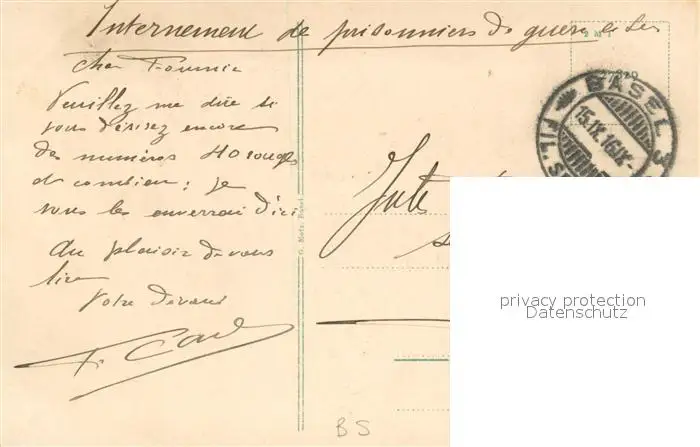 Internement de prisonniers de guerre
Cher Fournie
Veuillez me dire si
vous désirez encore
des numéros 40 rouges
et combien; je
vous les enverrai d'ici
Au plaisir de vous
lire
Votre dévoué
2 M
27829
BASEL 3
15.IX.16.IX-
FIL.S
G. Metz, Basel
privacy protection
Datenschutz
BS